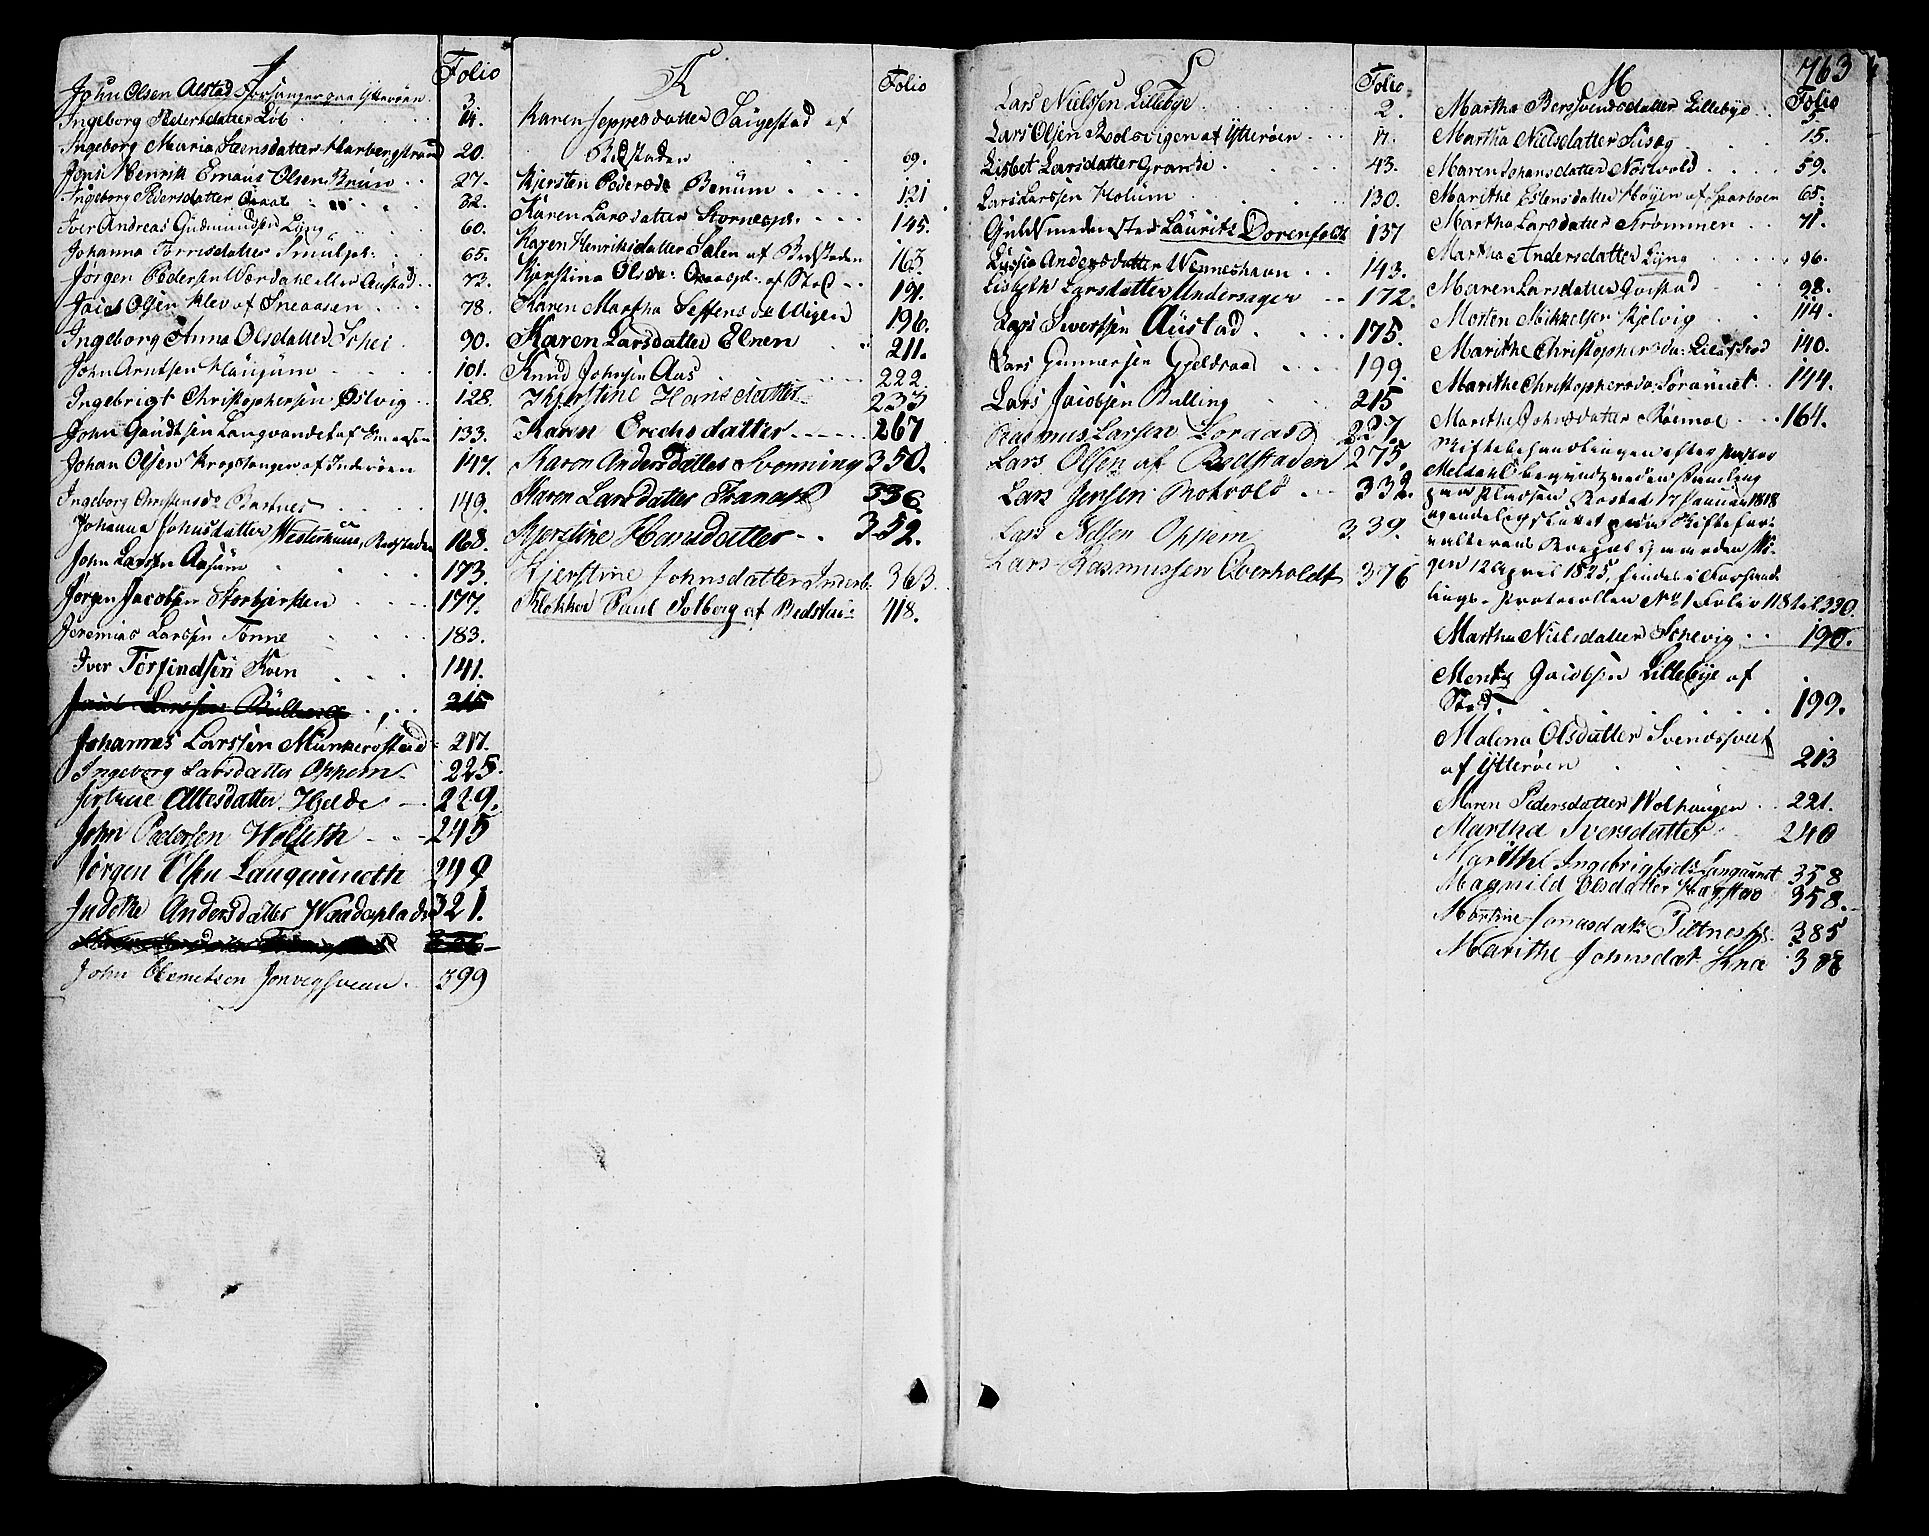 J
Folio
John Olsen Alstad Forsanger paa Ytterøen 3.
Ingeborg Pedersdatter Løb 14.
Ingeborg Maria Steensdatter Harbergstrand 20.
Joni Henrik Ernaus Olsen Bruun 27.
Ingeborg Pedersdatter 32.
Iver Andreas Gudmundsen Lyng 60.
Johanna Torrisdatter 65.
Jørgen Pedersen Wærdahl eller Austad 73.
Jacob Olsen Klev af Sneaasen 78.
Ingeborg Anna Olsdatter Schei 90.
John Arntsen Haugum 101.
Ingebrigt Christophersen Østvig 128.
John Gundtsen Langvandet af 133.
Johan Olsen Krogstangen af Inderøen 147.
Ingeborg Christensda Bartnes 149.
Johanna Johnsdatter Westerhuus, Bedstaden 168.
John Larsen Aasum 173.
Jørgen Jacobsen Storbjerken 177.
Jeremias Larsen Tønne 183.
Iver Torfindsen Kven 141.
Jacob Larsen Bulling 215
Johannes Larssen Munkerostad 217.
Ingeborg Larsdatter Oppem 225.
Jertrue Attesdatter Helde 229.
John Pedersen Wolseth 245
Jørgen Olsen Langaunotte 249
Indeke Andersdatter 321.
John Clemetsen 399
K
Folio
Karen Jeppesdatter Saugestad af
Bedstaden 69.
Kjersten Pedersda Benum 121
Karen Larsdatter Stornespl. 145.
Karen Henriksdatter Salen af Bedstaden 163
Kjerstina Olsda: af Stod 191.
Karen Martha Steffensda Wigen 196.
Karen Larsdatter Elnen 211.
Knud Johnsen Aas 222.
Kjerstine Hansdatter 233
Karen Erichsdatter 267
Karen Andersdatter Svenning 350.
Karen Larsdatter 336
Kjerstine Hansdatter 352.
Kjerstine Johnsdatter Inderb. 363.
Klokker Paul Solberg af Bedstad 118.
L
Folio
Lars Nielssen Lillebye 2.
Lars Olsen Bolsvigen af Ytterøen 11.
Lisbet Larsdatter Grande 43.
Lars Larssen Holum 130.
Guldsmedmester Laurits Dorenfeldt 137
Lussia Andersdatter Wenneshavn 143.
Lisbeth Larsdatter Undersager 172.
Lars Sivertsen Austad 175.
Lars Gunnersen Gjeldsaas 199.
Lars Jacobsen Bulling 215
Rasmus Larsen Loraas 227.
Lars Olsen af Bedstaden 275.
Lars Jensen Rotvold 332.
Lars Nelsen Oppem 339.
Lars Rasmussen Overholdt 376
763
M
Folio
Martha Bersvendsdatter Lillebye 5.
Martha Nielsdatter Susæg 15.
Maren Johansdatter Nøstvold 59.
Marithe Estensdatter Høyen af Sparboen 65.
Martha Larsdatter Strømmen 71.
Martha Andersdatter Lyng 96.
Maren Larsdatter Qvistad 98.
Morten Mikkelsen Kjelvig 114.
Marithe Christophersda: 140.
Marithe Christophersda 144.
Marithe Johnsdatter Røimol 164.
Skiftebehandlingen efter Pastor
Meldahl begyndt ved en Samling
paa Pladsen Rostad 17 Januar 1818
og endelig sluttet Skiftefor-
valterens i
gen 12 April 1825, findes i Forhand-
lings-Protocollen No 1 Folio 118 til 330.
Martha Nielsdatter Schevig 190.
Mentz Jacobsen Lillebye af
Stod. 199.
Malena Olsdatter Svendsveet
af Ytterøen 213
Maren Pedersdatter Wolhaugen 221.
Martha Iversdatter 240
Marithe Ingebrigtsd: 358
Magnild Olsdatter Hagstad 358.
Martine Jonasdat: Tiltnes 385
Marithe Johnsdat: 388